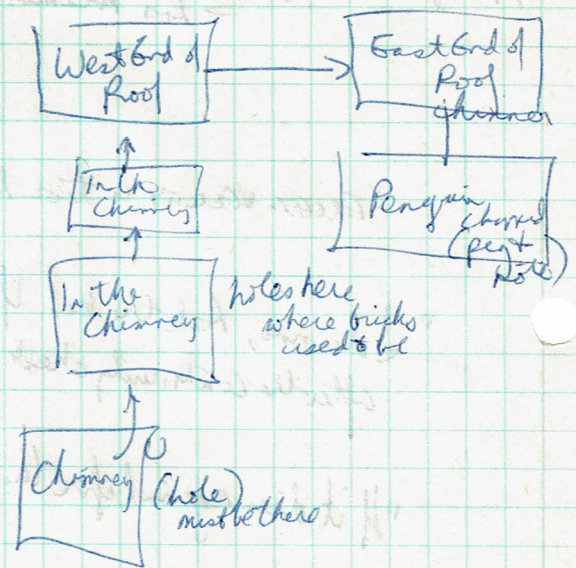 West End of
Roof
East End of
Roof
chimney
In the
Chimney
Penguin
In the
Chimney
holes here
where bricks
used to be
Chimney
(hole)
must be there